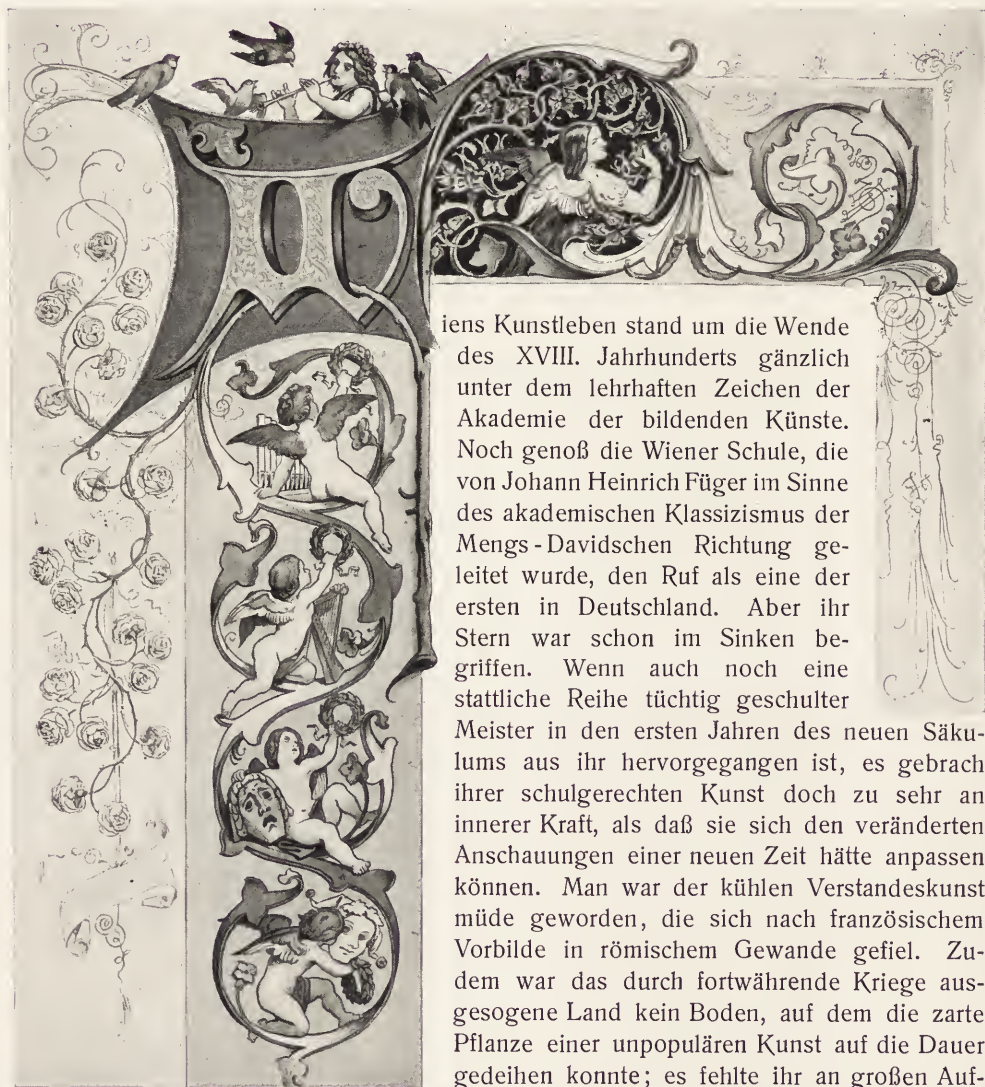 iens Kunstleben stand um die Wende
des XVIII. Jahrhunderts gänzlich
unter dem lehrhaften Zeichen der
Akademie der bildenden Künste.
Noch genoß die Wiener Schule, die
von Johann Heinrich Füger im Sinne
des akademischen Klassizismus der
Mengs-Davidschen Richtung ge-
leitet wurde, den Ruf als eine der
ersten in Deutschland. Aber ihr
Stern war schon im Sinken be-
griffen. Wenn auch noch eine
stattliche Reihe tüchtig geschulter
Meister in den ersten Jahren des neuen Säku-
lums aus ihr hervorgegangen ist, es gebrach
ihrer schulgerechten Kunst doch zu sehr an
innerer Kraft, als daß sie sich den veränderten
Anschauungen einer neuen Zeit hätte anpassen
können. Man war der kühlen Verstandeskunst
müde geworden, die sich nach französischem
Vorbilde in römischem Gewande gefiel. Zu-
dem war das durch fortwährende Kriege aus-
gesogene Land kein Boden, auf dem die zarte
Pflanze einer unpopulären Kunst auf die Dauer
gedeihen konnte; es fehlte ihr an großen Auf-